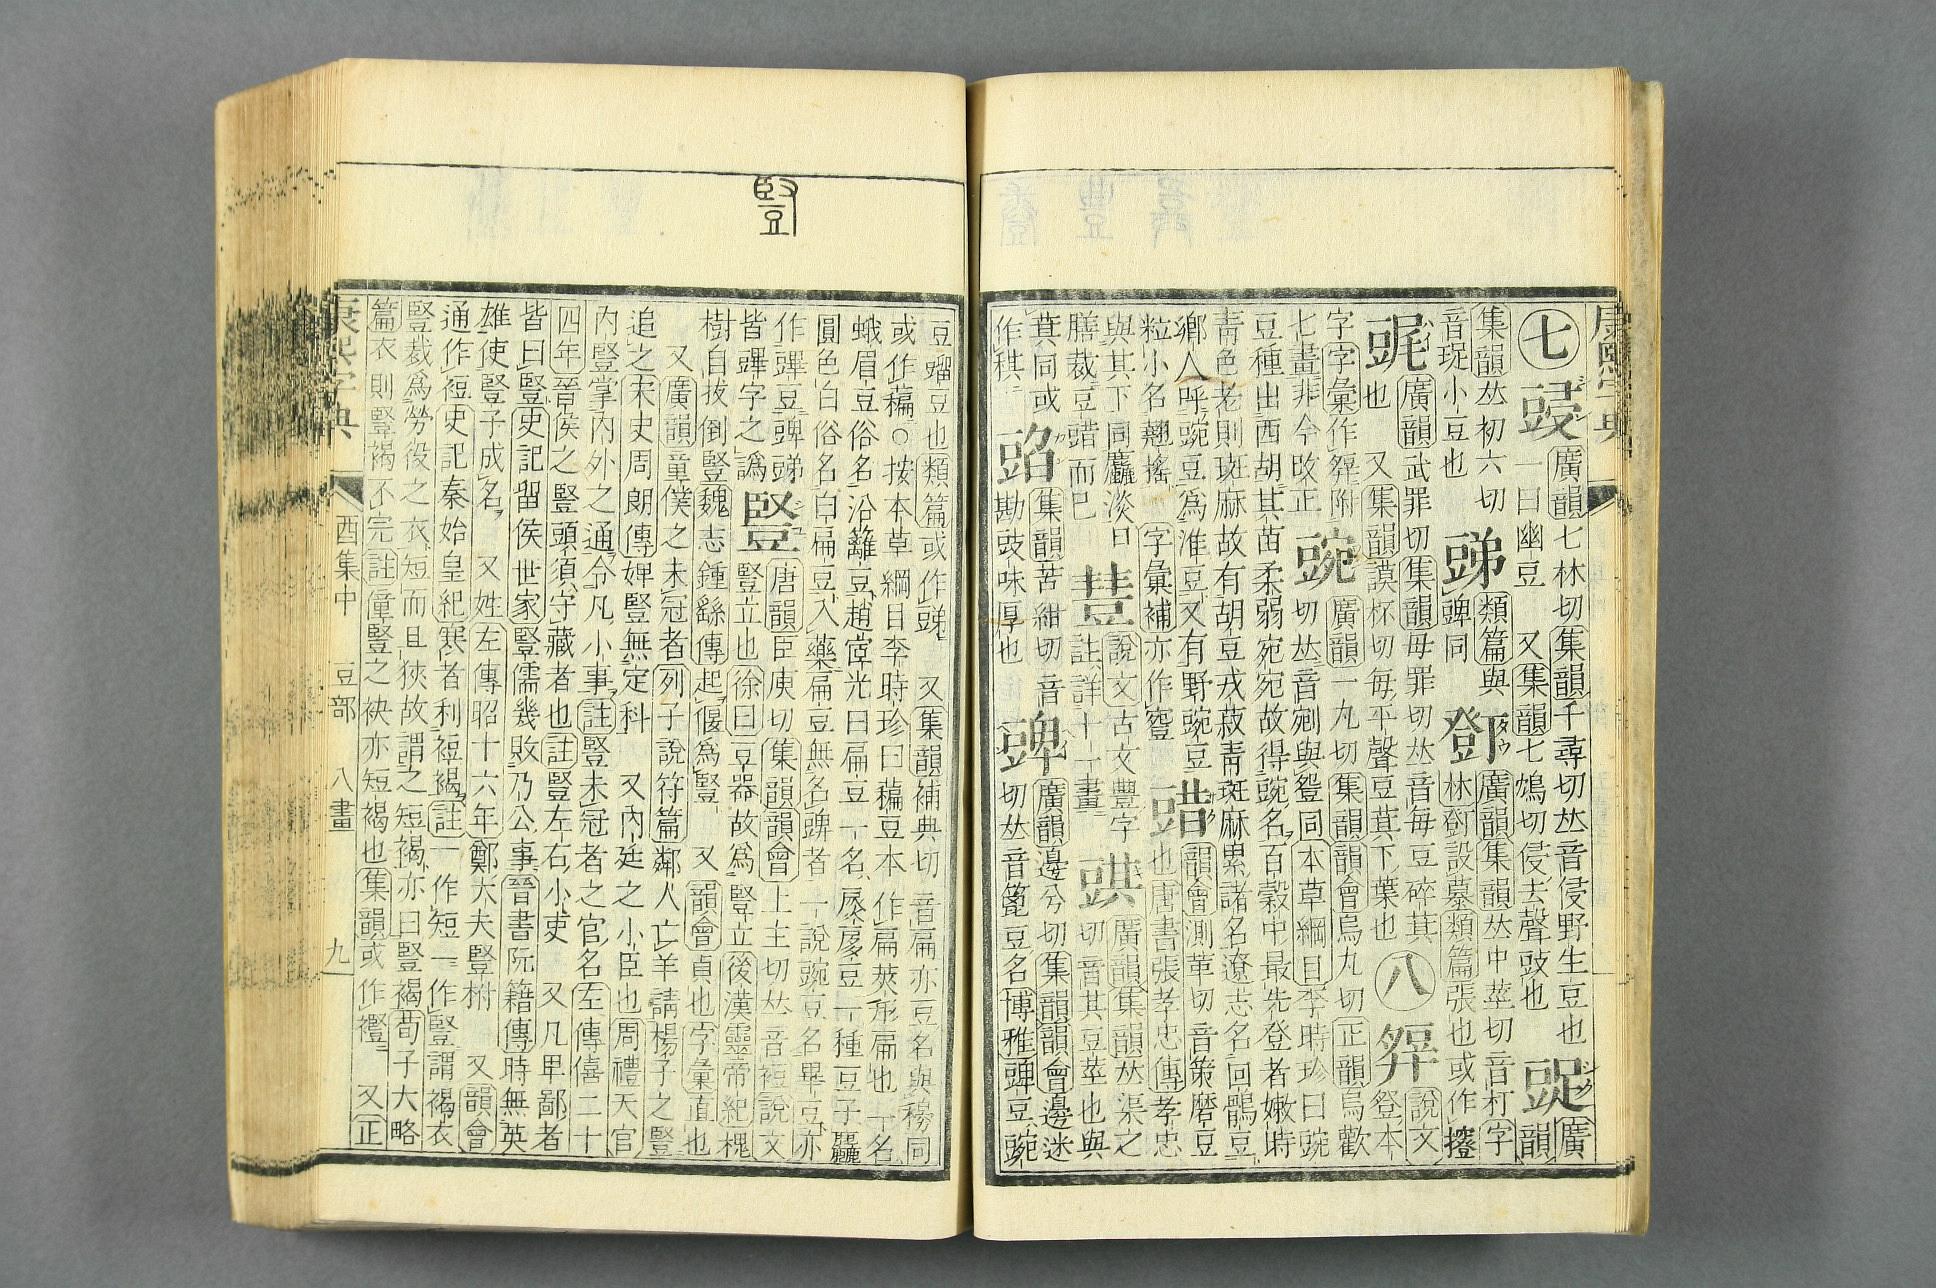 康熙字典
㊆䝆廣韻七林切集韻千尋切𠀤音侵野生豆也
一曰幽豆 又集韻七鴆切侵去聲豉也 廣韻
集韻𠀤初六切
音珿小豆也
䜻類篇與䜺同
廣韻集韻𠀤中莖切音朾字
林 設墓類篇張也或作
廣韻武罪切集韻母罪切𠀤音每豆碎萁
也 又集韻謨杯切每平聲豆萁下葉也 ㊇登 說文
字字彙作 附登本
七畫非今改正 豌廣韻一九切集韻韻會烏丸切正韻烏歡
切𠀤音剜與𧯡同本草綱目李時珍曰豌
豆種出西胡其苗柔弱宛宛故得豌名百穀中最先登者嫩時
靑色老則斑麻故有胡豆戎菽靑斑麻累諸名遼志名回鶻豆
鄉人呼豌豆爲淮豆又有野豌豆
粒小名翹搖 字彙補亦作
韻會測革切音策磨豆
也唐書張孝忠傳孝忠
與其下同麤淡日
膳裁豆䜺而已 說文古文豐字
註詳十一畫 廣韻集韻𠀤渠之
切音其豆莖也與
萁同或
作稘
集韻苦紺切音
勘豉味厚也
䜺廣韻邊兮切集韻韻會邊迷
切𠀤音篦豆名博雅䜺豆豌
豎
豆䝁豆也類篇或作䜻 又集韻補典切音扁亦豆名與稨同
或作藊○按本草綱目李時珍曰藊豆本作扁莢形扁也一名
蛾眉豆俗名沿籬豆趙 光曰扁豆一名 豆一種豆子麤
圓色白俗名白扁豆入藥扁豆無名䜺者一說豌豆名畢豆亦
作㻫豆䜺䜻
皆㻫字之譌 豎唐韻臣庾切集韻韻會上主切𠀤音裋說文
豎立也徐曰豆器故爲豎立後漢靈帝紀槐
樹自拔倒豎魏志鍾繇傳起偃爲豎 又韻會貞也字彙直也
又廣韻童僕之未冠者列子說符篇鄰人亡羊請楊子之豎
追之宋史周朗傳婢豎無定科 又內廷之小臣也周禮天官
內豎掌內外之通令凡小事註豎未冠者之官名左傳僖二十
四年晉侯之豎頭須守藏者也註豎左右小吏 又凡卑鄙者
皆曰豎史記留侯世家豎儒幾敗乃公事晉書阮籍傳時無英
雄使豎子成名 又姓左傳昭十六年鄭大夫豎柎 又韻會
通作裋史記秦始皇紀寒者利裋褐註一作短一作豎謂褐衣
豎裁爲勞役之衣短而且狹故謂之短褐亦曰豎褐荀子大略
篇衣則豎褐不完註僮豎之袂亦短褐也集韻或作𧞫 又正
康熙字典 酉集中 豆部 八畫 九